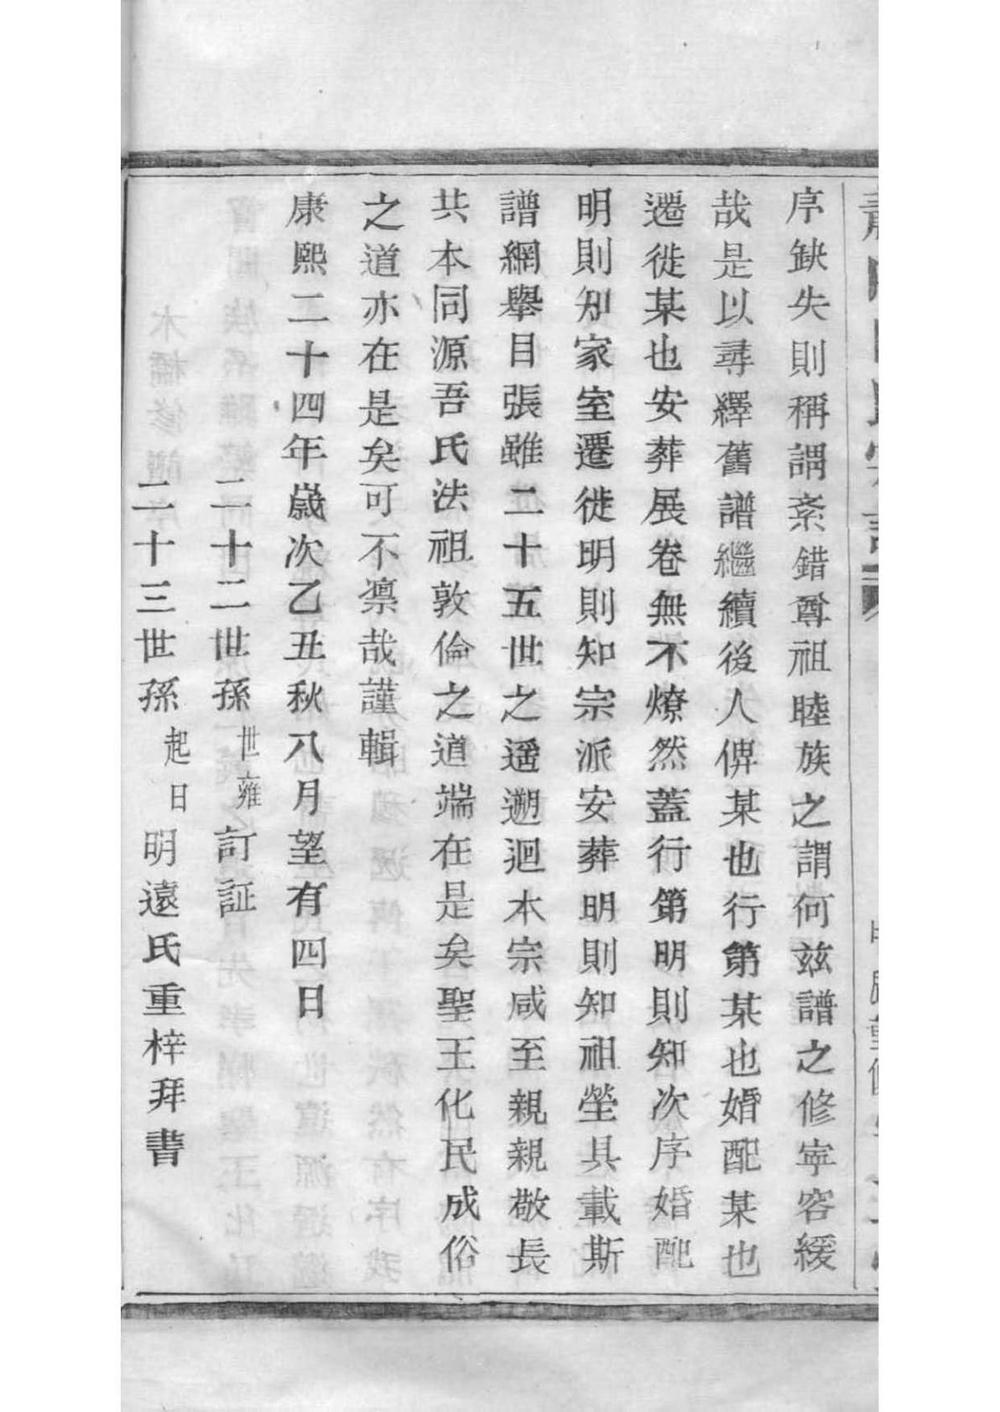 序缺失則稱謂紊錯尊祖睦族之謂何玆譜之修寜容緩
哉是以尋繹舊譜繼續後人俾某也行第某也婚配某也
遷徙某也安葬展卷無不燎然蓋行第明則知次序婚配
明則知家室遷徙明則知宗派安葬明則知祖塋具載斯
譜網舉目張雖二十五世之遥遡迴木宗咸至親親敬長
共本同源吾氏法祖敦倫之道端在是矣聖王化民成俗
之道亦在是矣可不凛哉謹輯
康熙二十四年歲次乙丑秋八月望有四日
二十二世孫世雍訂証
二十三世孫起日明遠氏重梓拜書